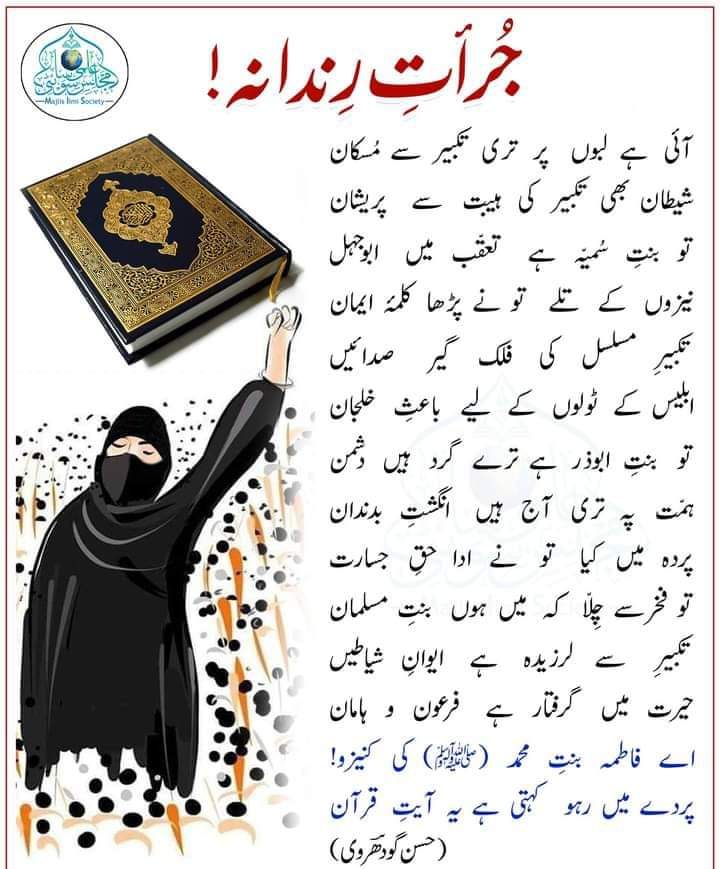 مجلس علمی سوسائٹی
Majlis Ilmi Society
جُرأتِ رِندانہ!
آئی ہے لبوں پر تری تکبیر سے مُسکان
شیطان بھی تکبیر کی ہیبت سے پریشان
تو بنتِ سُمیّہ ہے تعقّب میں ابوجہل
نیزوں کے تلے تو نے پڑھا کلمۂ ایمان
تکبیرِ مسلسل کی فلک گیر صدائیں
ابلیس کے ٹولوں کے لیے باعثِ خلجان
تو بنتِ ابوذر ہے ترے گرد ہیں دشمن
ہمّت پہ تری آج ہیں انگشتِ بدنداں
پردہ میں کیا تو نے ادا حقِ جسارت
تو فخر سے چِلّا کہ میں ہوں بنتِ مسلمان
تکبیرِ سے لرزیدہ ہے ایوانِ شیاطیں
حیرت میں گرفتار ہے فرعون و ہامان
اے فاطمہ بنتِ محمد (ﷺ) کی کنیزو!
پردے میں رہو کہتی ہے یہ آیتِ قرآن
(حسن گودھروی)